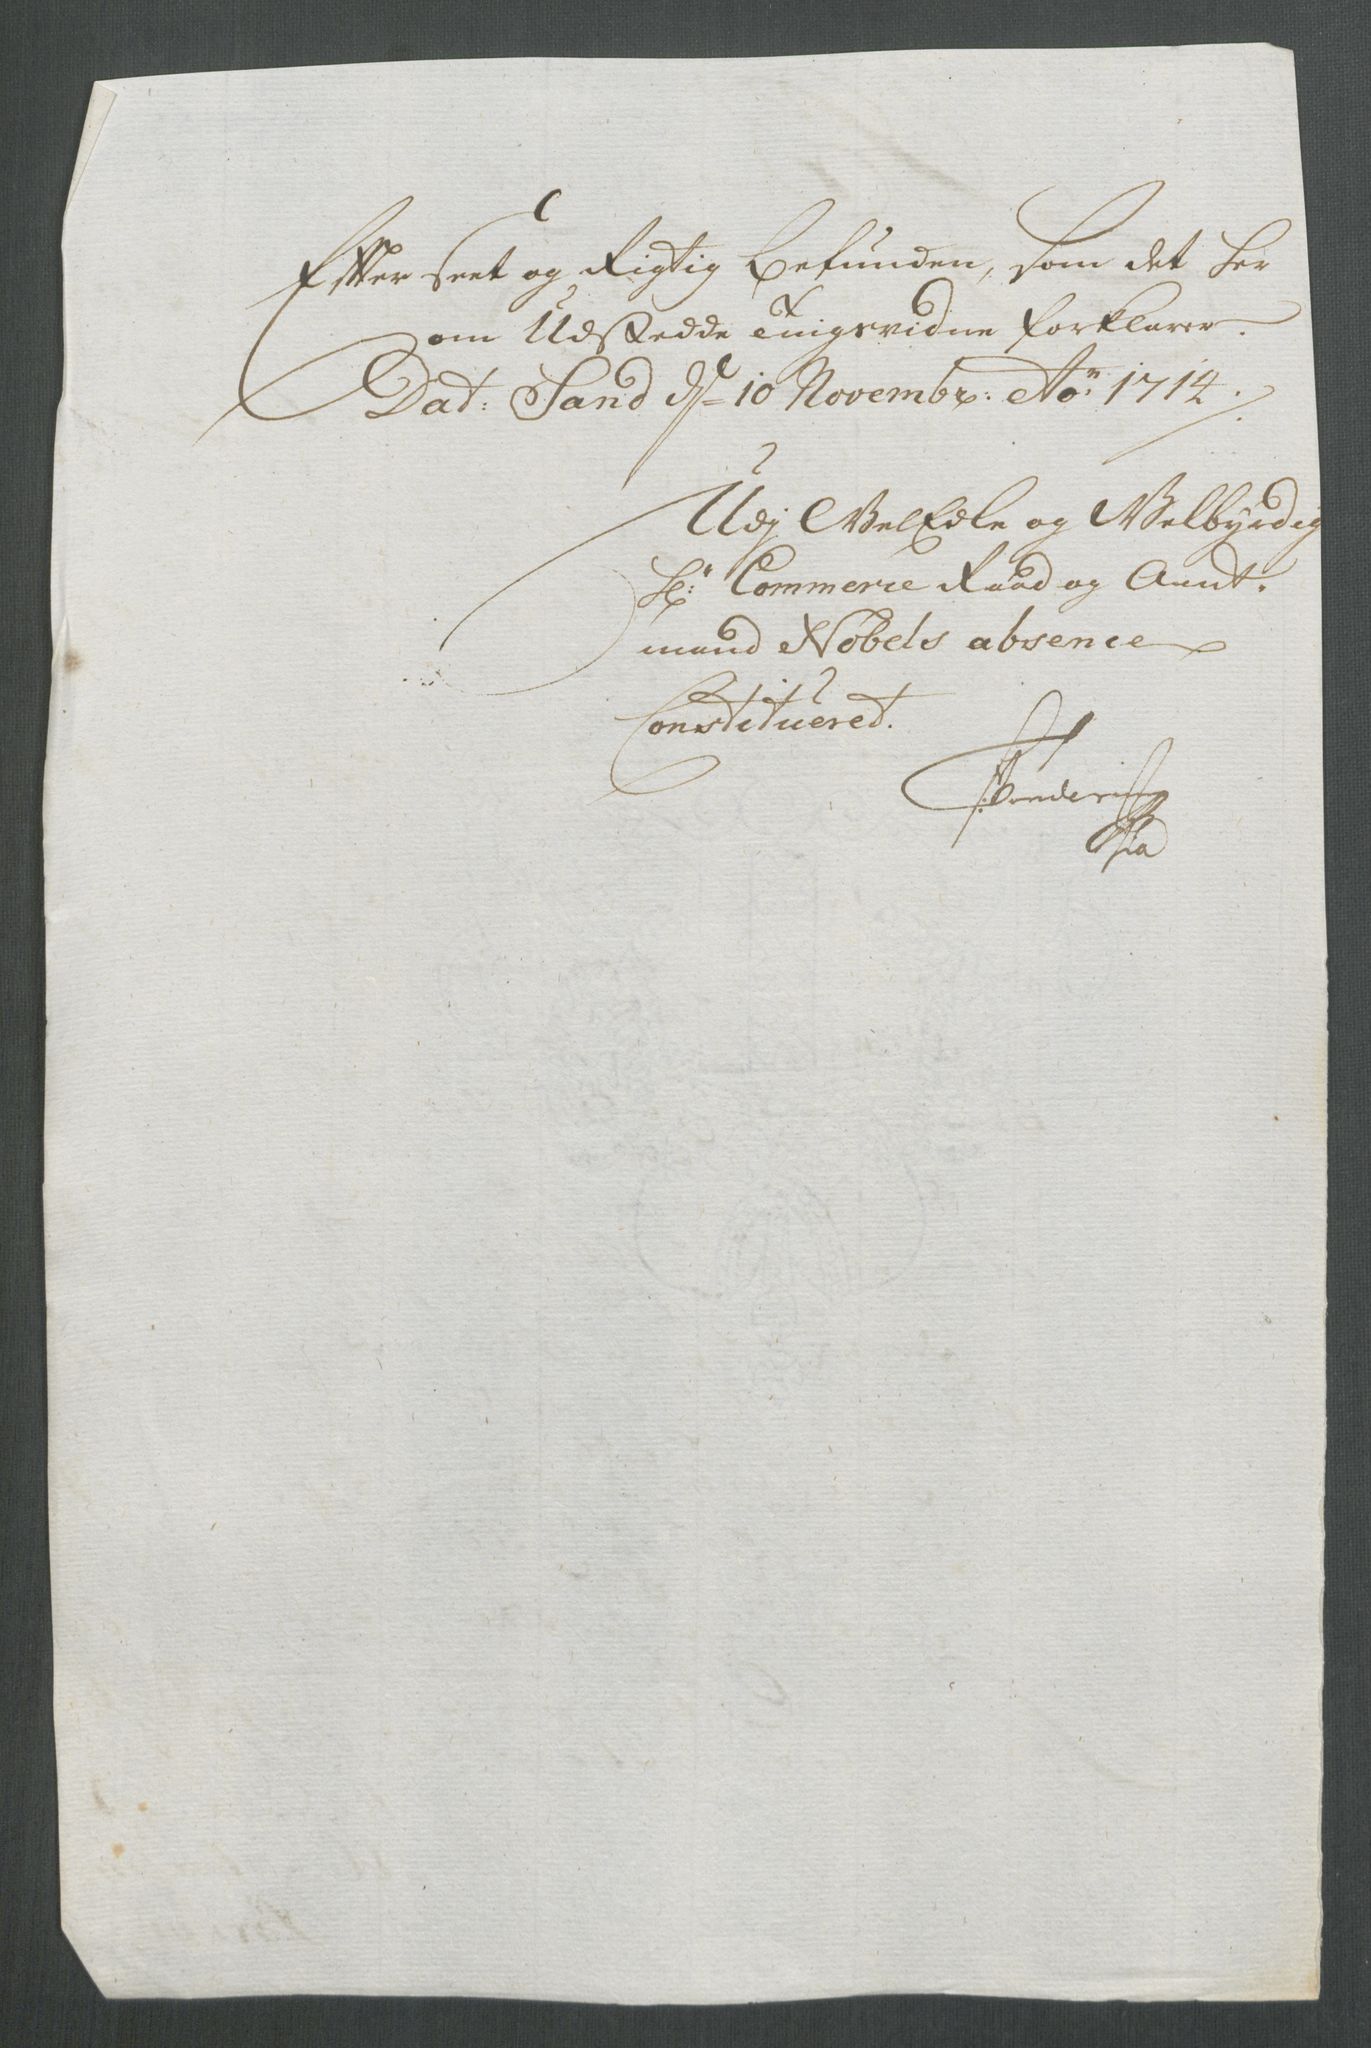 Effter seet og Rigtig befunden, som det her
om Udstedde tingsvidne forklarer.
Dat: Sand d. 10 Novembr: Ao: 1714.
Udj VelEdle og Velbÿrdig
Hr: Commerce Raad og Amt-
mand Nobels absence
Constitueret.